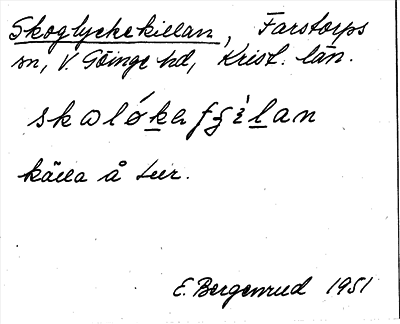 Skoglyckekillan, Farstorps
sn, V. Göinge hd, Krist. län.
skωlǿkafʒìlan
källa å
E. Bergenrud 1951